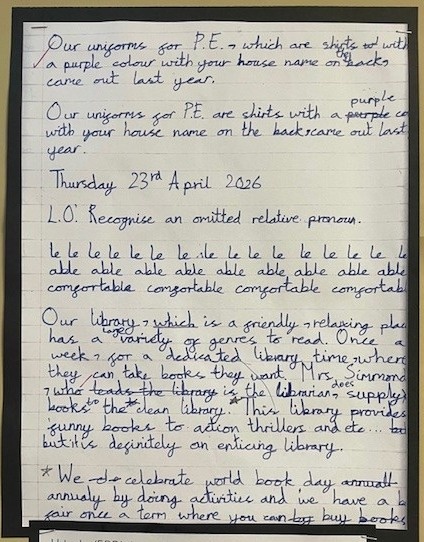 Our uniforms for P.E., which are shirts with
a purple colour with your house name on the back,
came out last year.
Our uniforms for P.E. are shirts with a purple co
with your house name on the back, came out last
year.
Thursday 23rd April 2026
L.O: Recognise an omitted relative pronoun.
le le le le le le le le le le le le le
able able able able able able able able able
comfortable comfortable comfortable comfortab
Our library, which is a friendly, relaxing plac
has a large variety of genres to read. Once a
week, for a dedicated library time, where
they can take books they want. Mrs. Simmond
, who leads the library is the librarian, does supply
books to the * clean library. This library provides
funny books to action thrillers and etc...
but it is definitely an enticing library.
* We celebrate world book day
annualy by doing activities and we have a b
fair once a term where you can buy books